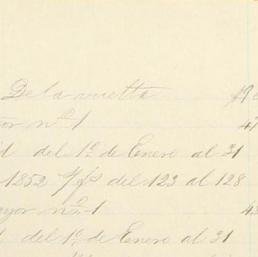 De la vuelta
yor nº 1
d del 1º de Enero al 31
1852 del 123 al 128
ayor nº 1
d del 1º de Enero al 31